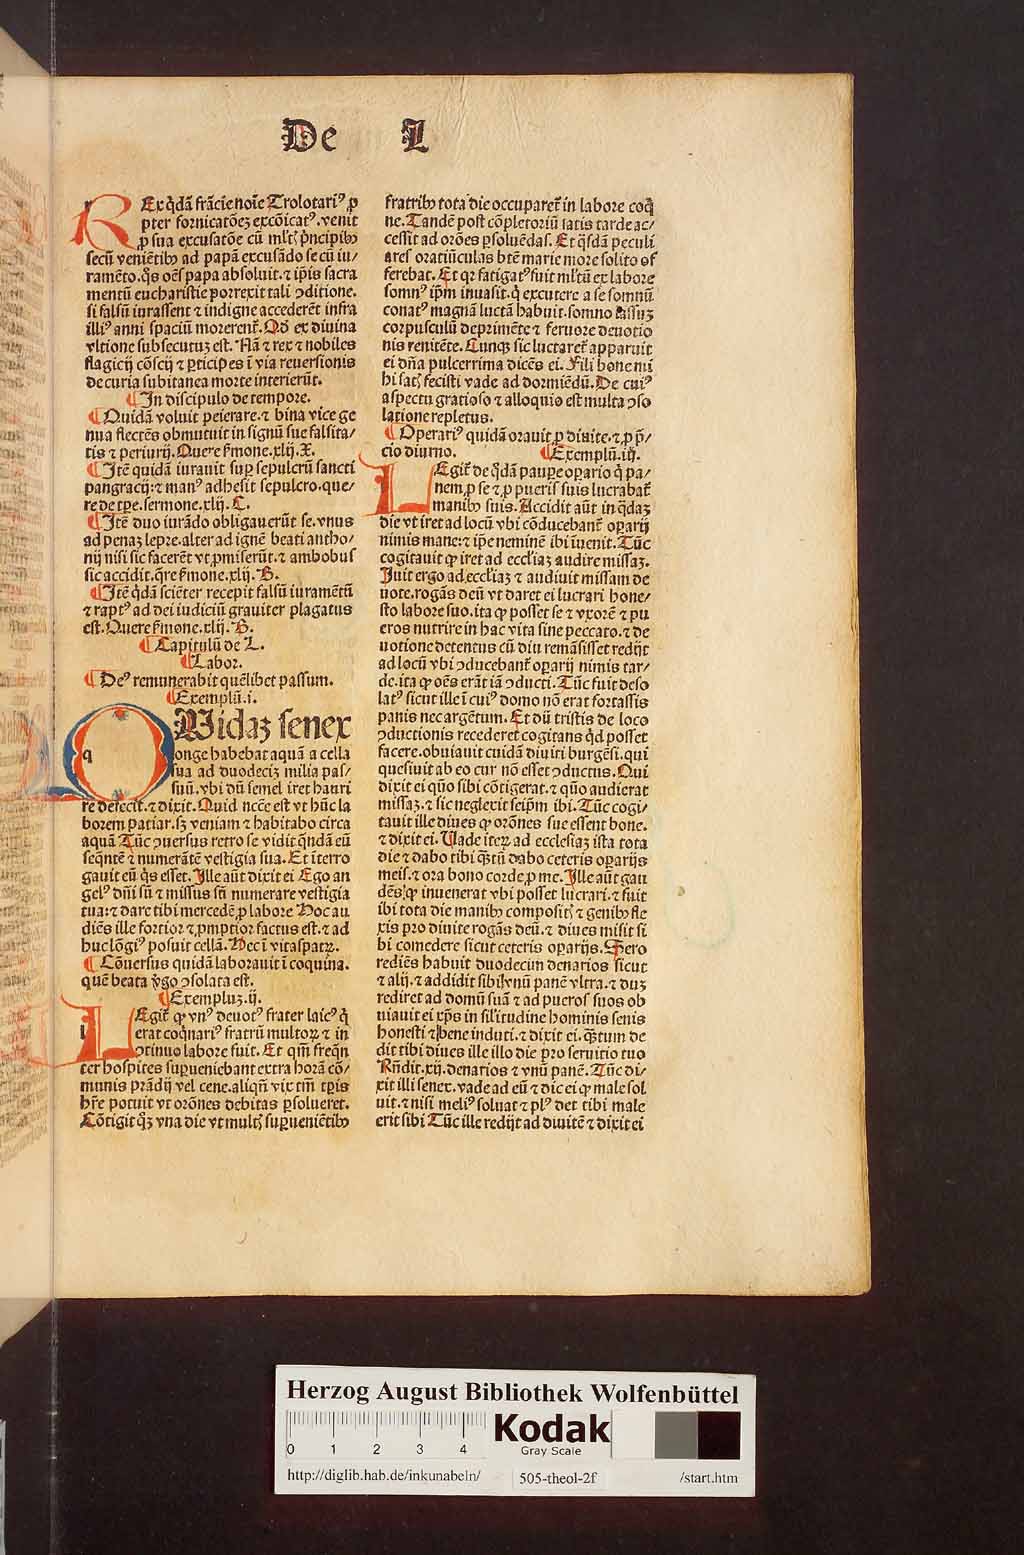 De L
REx qdā frācie noīe Trolotariꝰ ꝓ
pter fornicatōeꝫ excōicatꝰ. venit
ꝓ sua excusatōe cū mltꝭ pncipibꝫ
secū veniētibꝫ ad papā excusādo se cū iu/
ramēto. qs oēs papa absoluit. ⁊ ip̄is sacra
mentū eucharistie porrexit tali ꝯditione.
si falsū iurassent ⁊ indigne accederēt infra
illiꝰ anni spaciū morerent̄. Qd̄ ex diuina
vltione subsecutuꝫ est. Nā ⁊ rex ⁊ nobiles
flagicij cōscij ⁊ ꝑticipes ī via reuersionis
de curia subitanea morte interierūt.
¶ In discipulo de tempore.
¶ Quidā voluit peierare. ⁊ bina vice ge
nua flectēs obmutuit in signū sue falsita/
tis ⁊ periurij. Quere ẜmone. xlij. X.
¶ Itē quidā iurauit suꝑ sepulcrū sancti
pangracij: ⁊ manꝰ adhesit sepulcro. que/
re de tꝑe. sermone. xlij. C.
¶ Itē duo iurādo obligauerūt se. vnus
ad penaꝫ lepre. alter ad ignē beati antho/
nij nisi sic facerēt vt ꝓmiserūt. ⁊ ambobus
sic accidit. qre ẜmone. xlij. B.
¶ Itē qdā sciēter recepit falsū iuramētū
⁊ raptꝰ ad dei iudiciū grauiter plagatus
est. Quere ẜmone. xlij. B.
¶ Capitulū de L.
¶ Labor.
¶ Deꝰ remunerabit quēlibet passum.
¶ Exemplū. i.
QUidaꝫ senex
longe habebat aquā a cella
sua ad duodeciꝫ milia pas/
suū. vbi dū semel iret hauri
re defecit. ⁊ dixit. Quid ncēe est vt hūc la
borem patiar. sꝫ veniam ⁊ habitabo circa
aquā Tūc ꝯuersus retro se vidit qndā eū
seqntē ⁊ numerātē vestigia sua. Et īterro
gauit eū qs esset. Ille aūt dixit ei Ego an
gelꝰ dn̄i sū ⁊ missus sū numerare vestigia
tua: ⁊ dare tibi mercedē ꝓ labore Hoc au
diēs ille fortior ⁊ ꝓmptior factus est. ⁊ ad
huc lōgiꝰ posuit cellā. Hec ī vitaspatꝝ.
¶ Cōuersus quidā laborauit ī coquina.
quē beata v̄go ꝯsolata est.
¶ Exempluꝫ. ij.
LEgit̄ ꝙ vnꝰ deuotꝰ frater laicꝰ q
erat coqnariꝰ fratrū multoꝝ ⁊ in
ꝯtinuo labore fuit. Et qm̄ freqn
ter hospites suꝑueniebant extra horā cō/
munis prādij vel cene. aliqn̄ vix tm̄ tꝑis
hr̄e potuit vt orōnes debitas ꝑsolueret.
Cōtigit qꝫ vna die vt multꝭ suꝑueniētibꝫ
fratribꝫ tota die occuparet̄ in labore coq
ne. Tandē post cōpletoriū satis tarde ac/
cessit ad orōes ꝑsoluēdas. Et qsdā peculi
ares oratiūculas bt̄e marie more solito of
ferebat. Et qꝛ fatigatꝰ fuit mltū ex labore
somnꝰ ip̄m inuasit. q excutere a se somnū
conatꝰ magnā luctā habuit. somno
corpusculū deprimēte ⁊ feruore deuotio
nis renitēte. Cunqꝫ sic luctaret̄ apparuit
ei dn̄a pulcerrima dicēs ei. Fili bone mi
hi satꝭ fecisti vade ad dormiēdū. De cuiꝰ
aspectu gratioso ⁊ alloquio est multa ꝯso
latione repletus.
¶ Operariꝰ quidā orauit ꝓ diuite. ⁊ ꝓ p̄/
cio diurno. ¶ Exemplū. iij.
LEgit̄ de qdā pauꝑe oꝑario q pa/
nem ꝓ se ⁊ ꝓ pueris suis lucrabat̄
manibꝫ suis. Accidit aūt in qdaꝫ
die vt iret ad locū vbi cōducebant̄ oꝑarij
nimis mane: ⁊ ip̄e neminē ibi īuenit. Tūc
cogitauit ꝙ iret ad eccl'iaꝫ audire missaꝫ.
Iuit ergo ad eccl'iaꝫ ⁊ audiuit missam de
uote. rogās deū vt daret ei lucrari hone/
sto labore suo. ita ꝙ posset se ⁊ vxorē ⁊ pu
eros nutrire in hac vita sine peccato. ⁊ de
uotione detentus cū diu remāsisset redijt
ad locū vbi ꝯducebant̄ oꝑarij nimis tar/
de. ita ꝙ oēs erāt iā ꝯducti. Tūc fuit deso
latꝰ sicut ille ī cuiꝰ domo nō erat fortassis
panis nec argētum. Et dū tristis de loco
ꝯductionis recederet cogitans qd posset
facere. obuiauit cuidā diuiti burgēsi. qui
quesiuit ab eo cur nō esset ꝯductus. Qui
dixit ei quō sibi cōtigerat. ⁊ quō audierat
missaꝫ. ⁊ sic neglexit seip̄m ibi. Tūc cogi/
tauit ille diues ꝙ orōnes sue essent bone.
⁊ dixit ei. Vade iteꝝ ad ecclesiaꝫ ista tota
die ⁊ dabo tibi qꝫtū dabo ceteris oꝑarijs
meis. ⁊ ora bono corde ꝓ me. Ille aūt gau
dēs ꝙ inuenerat vbi posset lucrari. ⁊ fuit
ibi tota die manibꝫ compositꝭ ⁊ genibꝫ fle
xis pro diuite rogās deū. ⁊ diues misit si
bi comedere sicut ceteris oꝑarijs. Sero
rediēs habuit duodecim denarios sicut
⁊ alij. ⁊ addidit sibi vnū panē vltra. ⁊ duꝫ
rediret ad domū suā ⁊ ad pueros suos ob
uiauit ei xp̄s in sil'itudine hominis senis
honesti ⁊ bene induti. ⁊ dixit ei. Qꝫtum de
dit tibi diues ille illo die pro seruitio tuo
Rn̄dit. xij. denarios ⁊ vnū panē. Tūc di/
xit illi senex. vade ad eū ⁊ dic ei ꝙ male sol
uit. ⁊ nisi meliꝰ soluat ⁊ plꝰ det tibi male
erit sibi Tūc ille redijt ad diuitē ⁊ dixit ei
Herzog August Bibliothek Wolfenbüttel
0 1 2 3 4
Kodak
Gray Scale
http://diglib.hab.de/inkunabeln/ 505-theol-2f /start.htm